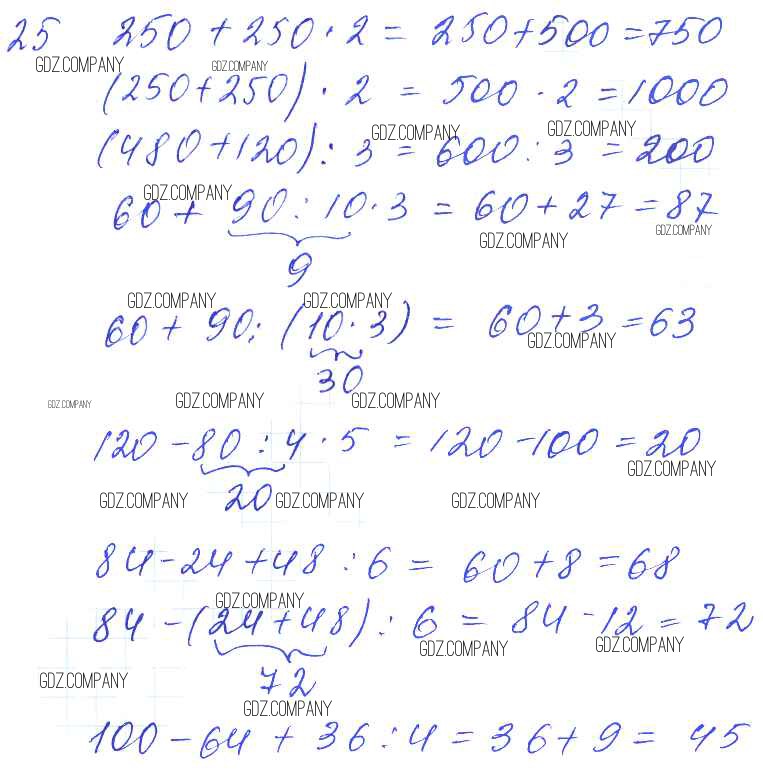 25 250 + 250 · 2 = 250 + 500 = 750
GDZ.COMPANY GDZ.COMPANY
(250 + 250) · 2 = 500 · 2 = 1000
GDZ.COMPANY GDZ.COMPANY
(480 + 120) : 3 = 600 : 3 = 200
GDZ.COMPANY
60 + 90 : 10 · 3 = 60 + 27 = 87
GDZ.COMPANY GDZ.COMPANY
9
GDZ.COMPANY GDZ.COMPANY
60 + 90 : (10 · 3) = 60 + 3 = 63
GDZ.COMPANY
30
GDZ.COMPANY GDZ.COMPANY GDZ.COMPANY
120 - 80 : 4 · 5 = 120 - 100 = 20
GDZ.COMPANY
20
GDZ.COMPANY GDZ.COMPANY GDZ.COMPANY
84 - 24 + 48 : 6 = 60 + 8 = 68
GDZ.COMPANY
84 - (24 + 48) : 6 = 84 - 12 = 72
GDZ.COMPANY GDZ.COMPANY
72
GDZ.COMPANY
GDZ.COMPANY
100 - 64 + 36 : 4 = 36 + 9 = 45